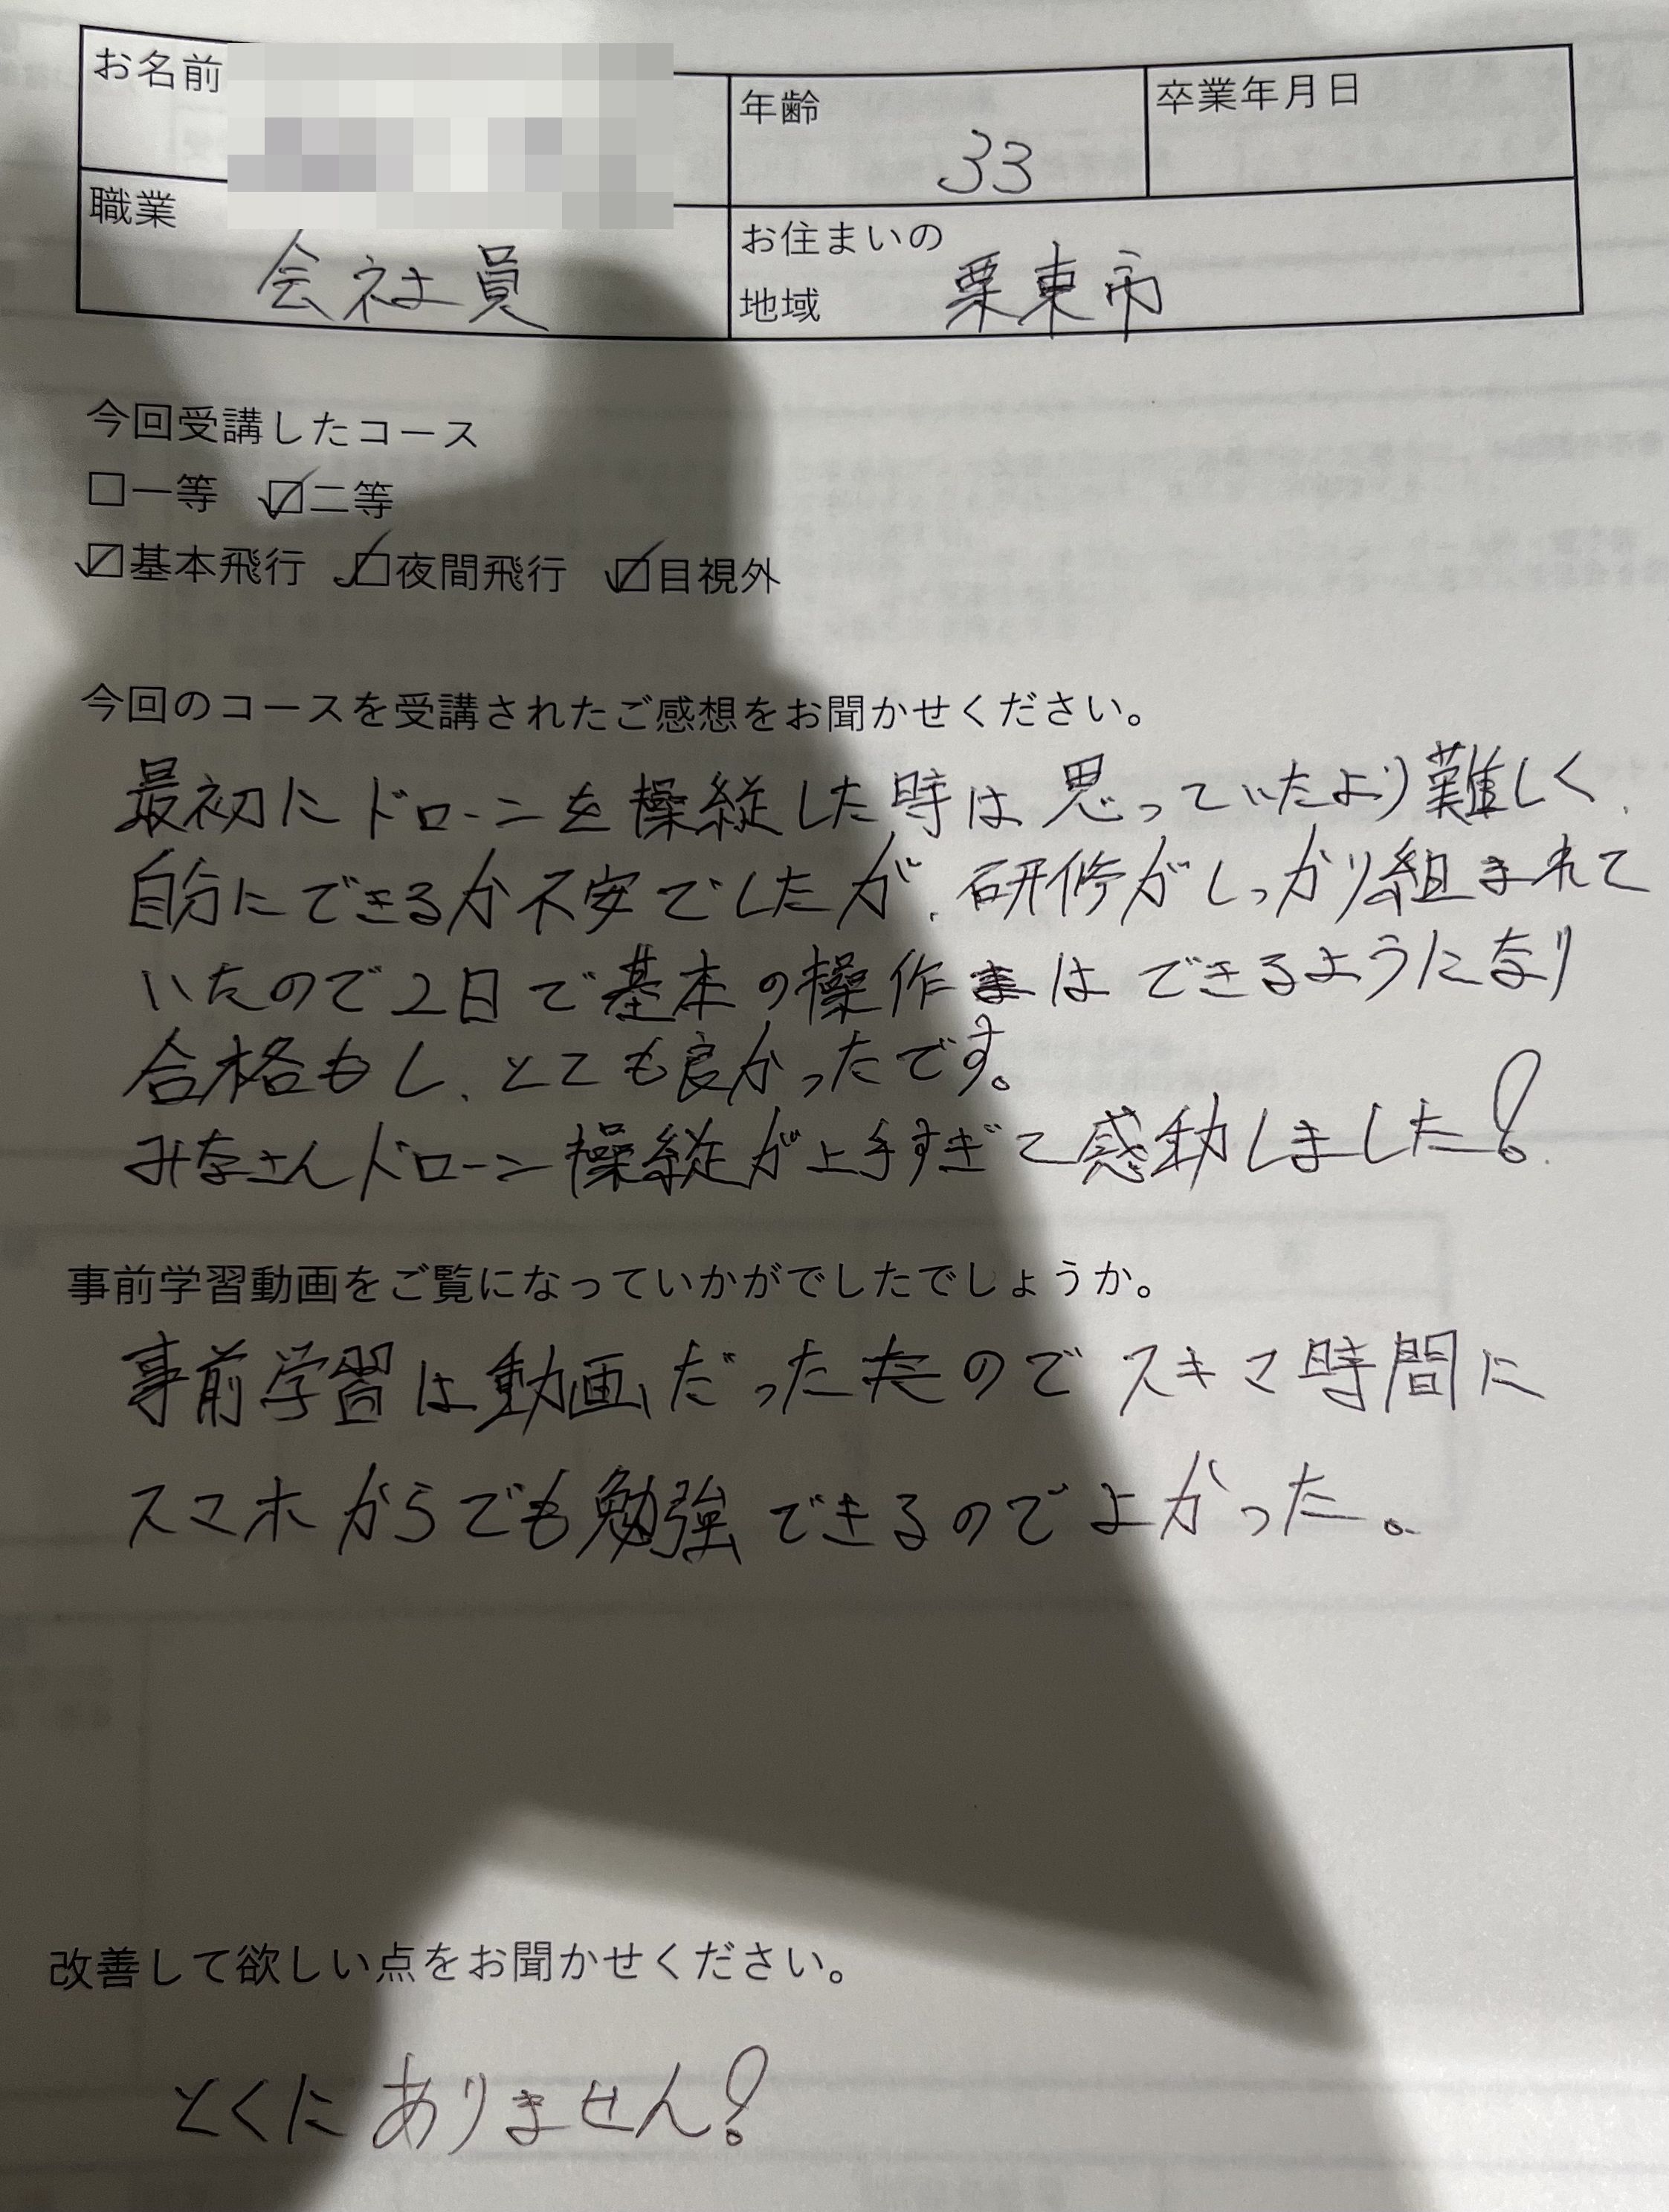 お名前
年齢
33
卒業年月日
職業
会社員
お住まいの
地域
栗東市
今回受講したコース
□一等 ☑二等
☑基本飛行 ☑夜間飛行 ☑目視外
今回のコースを受講されたご感想をお聞かせください。
最初にドローンを操縦した時は思っていたより難しく、
自分にできるか不安でしたが、研修がしっかり組まれて
いたので2日で基本の操作はできるようになり
合格もし、とても良かったです。
みなさんドローン操縦が上手すぎて感動しました!
事前学習動画をご覧になっていかがでしたでしょうか。
事前学習は動画だったのでスキマ時間に
スマホからでも勉強できるのでよかった。
改善して欲しい点をお聞かせください。
とくにありません!